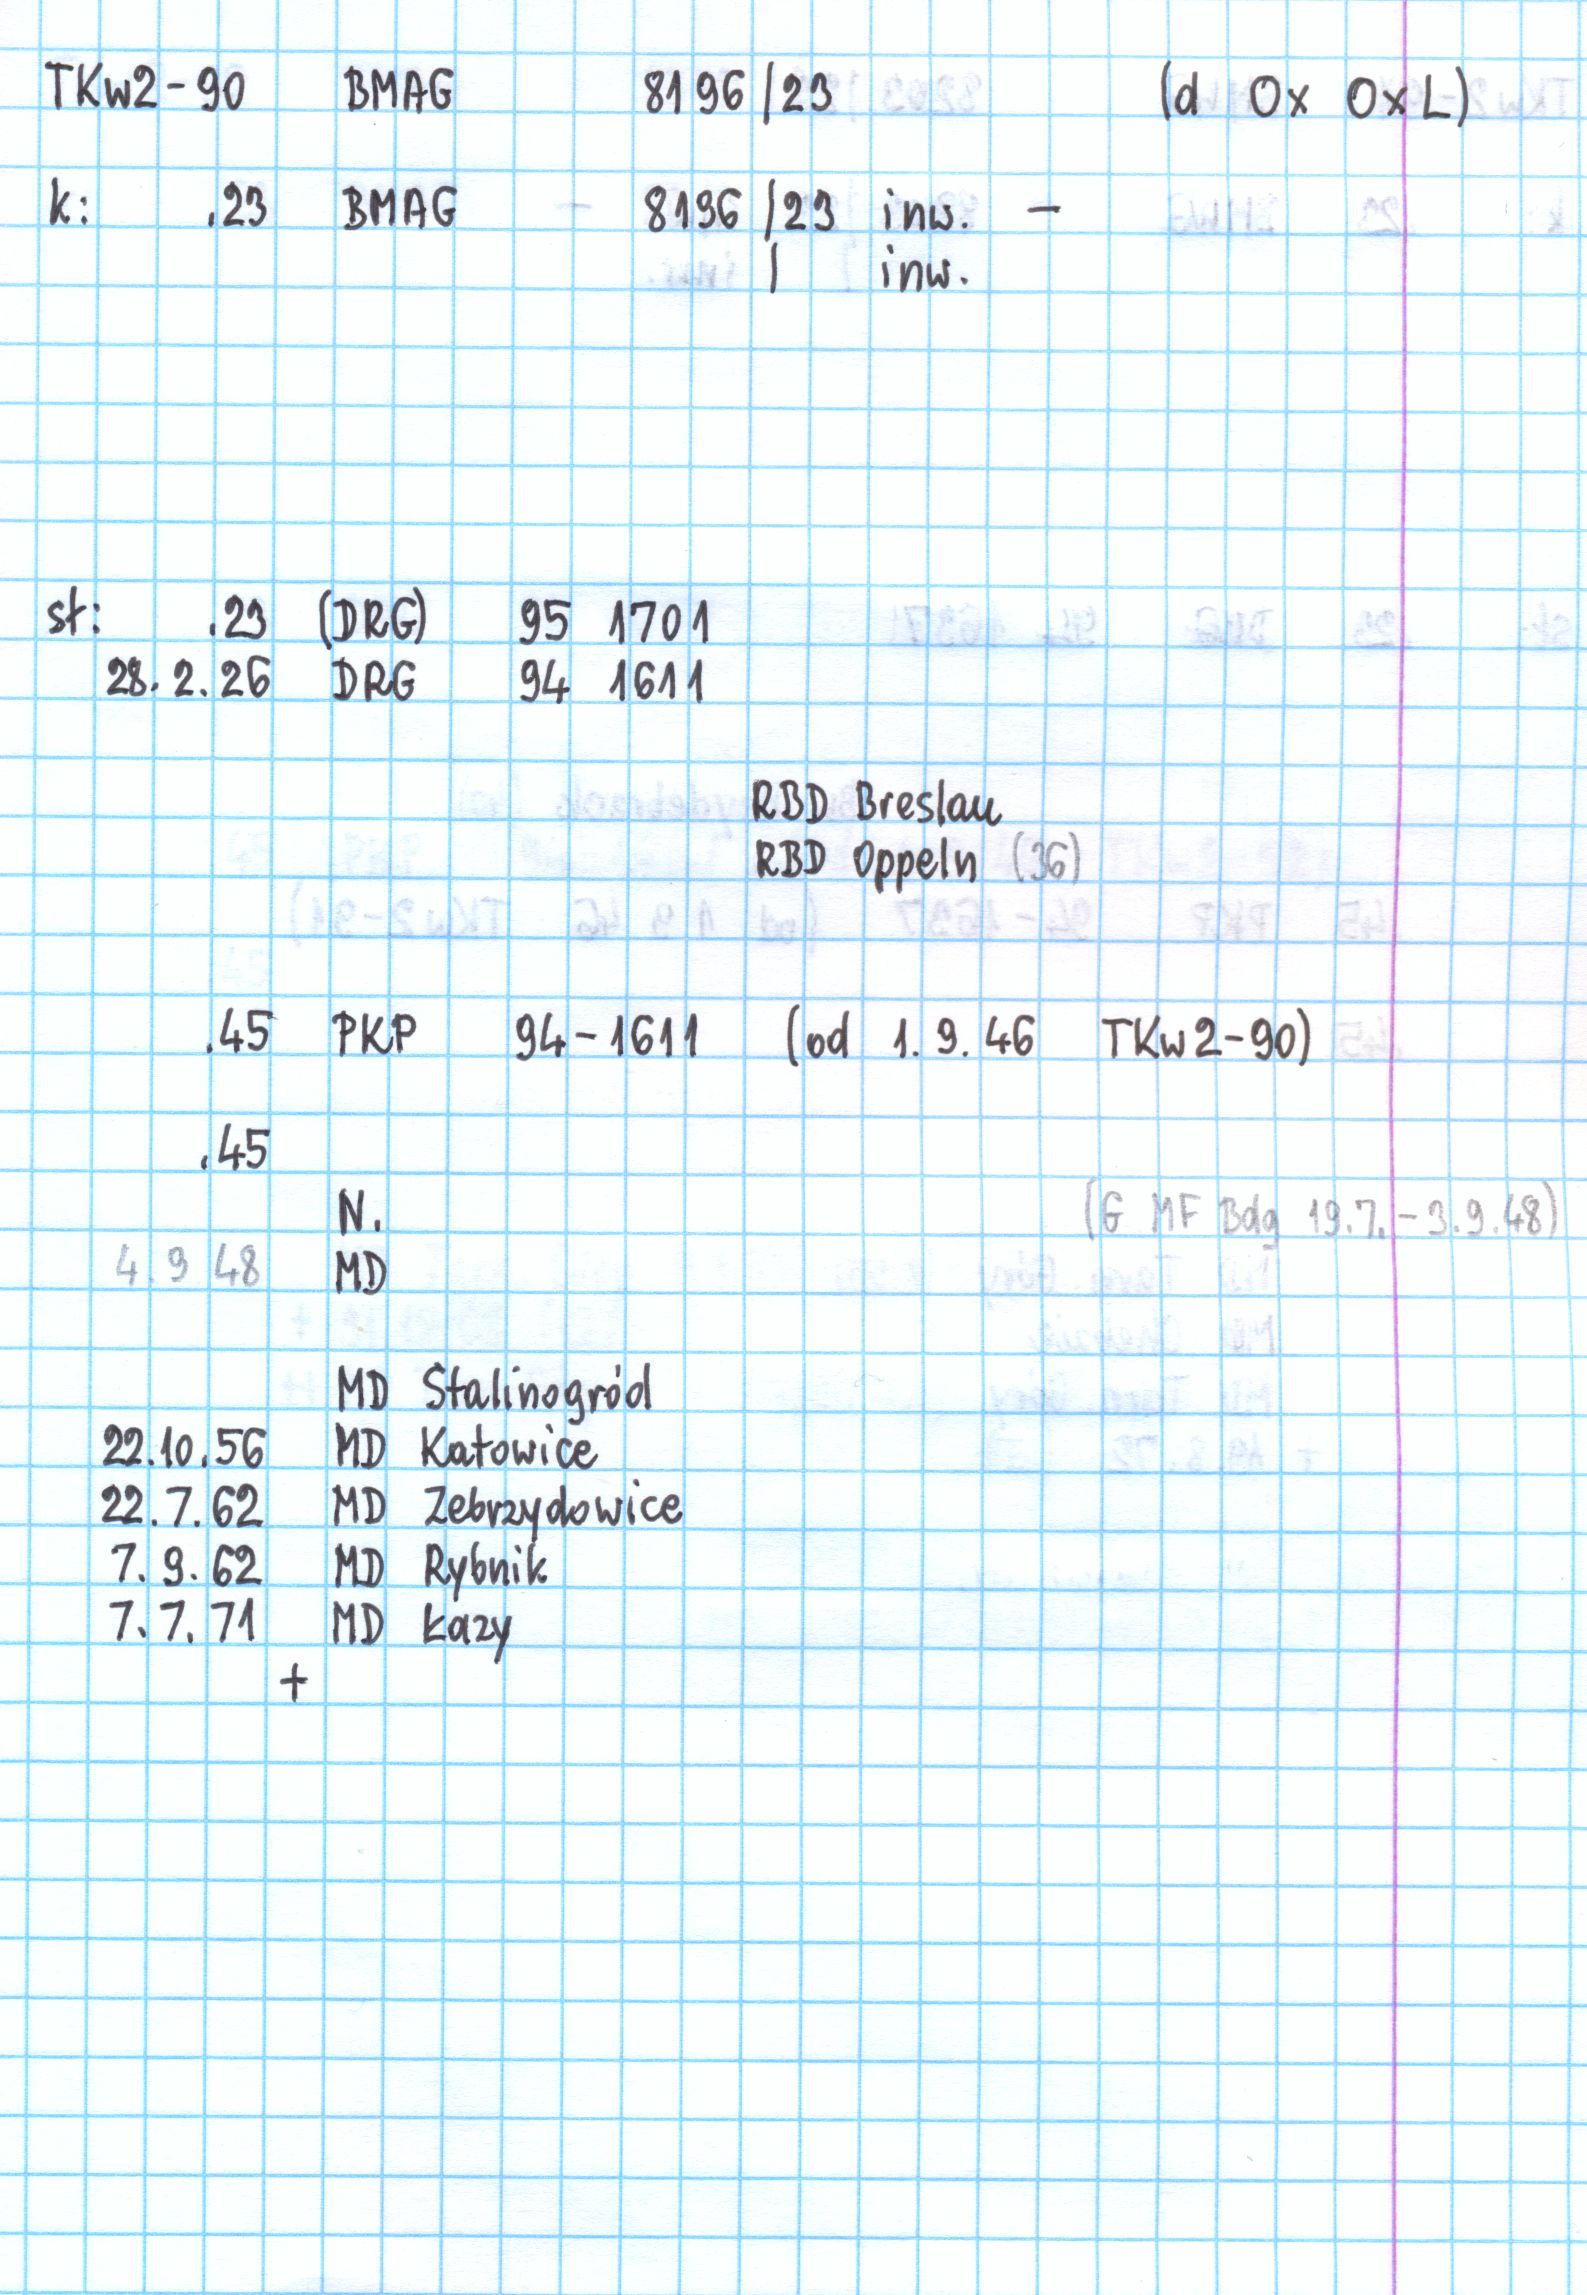 TKw2-90 BMAG 8196/23 (d 0x 0xL)
k: .23 BMAG - 8196/23 inw. -
/ inw.
st: .23 (DRG) 95 1701
28.2.26 DRG 94 1611
RBD Breslau
RBD Oppeln (36)
.45 PKP 94-1611 (od 1.9.46 TKw2-90)
.45
N. (G MF Bdg 19.7.-3.9.48)
4.9 48 MD
MD Stalinogród
22.10.56 MD Katowice
22.7.62 MD Zebrzydowice
7.9.62 MD Rybnik
7.7.71 MD Łazy
+